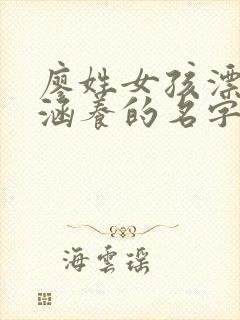 廖姓女孩漂
涵养的名字
海雲瑶